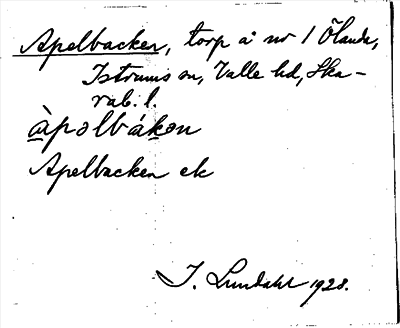 Apelbacken, torp å nr 1 Öland,
Istrums sn, Valle hd, Ska-
rab. l.
àpəlbákən
Apelbacken ek
I. Lundahl 1928.